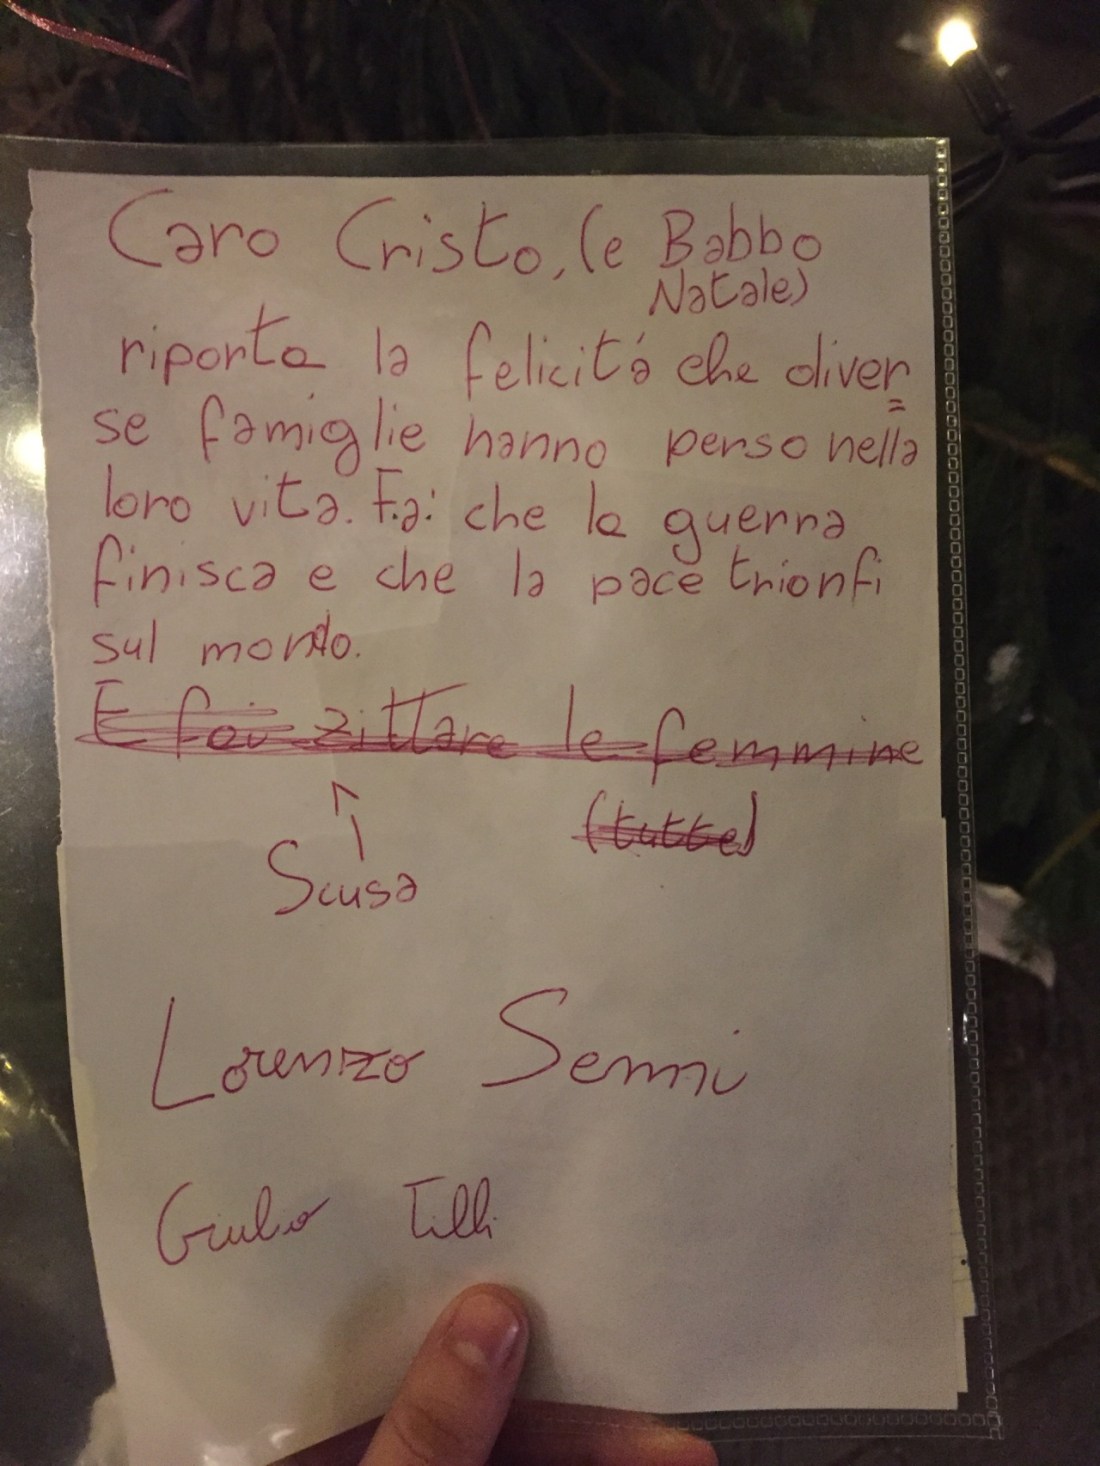 Caro Cristo, (e Babbo
Natale)
riporta la felicitá che diver
=
se famiglie hanno perso nella
loro vita. Fai che la guerra
finisca e che la pace trionfi
sul mondo.
E fai zittare le femmine
(tutte)
Scusa
Lorenzo Senni
Giulio Tilli